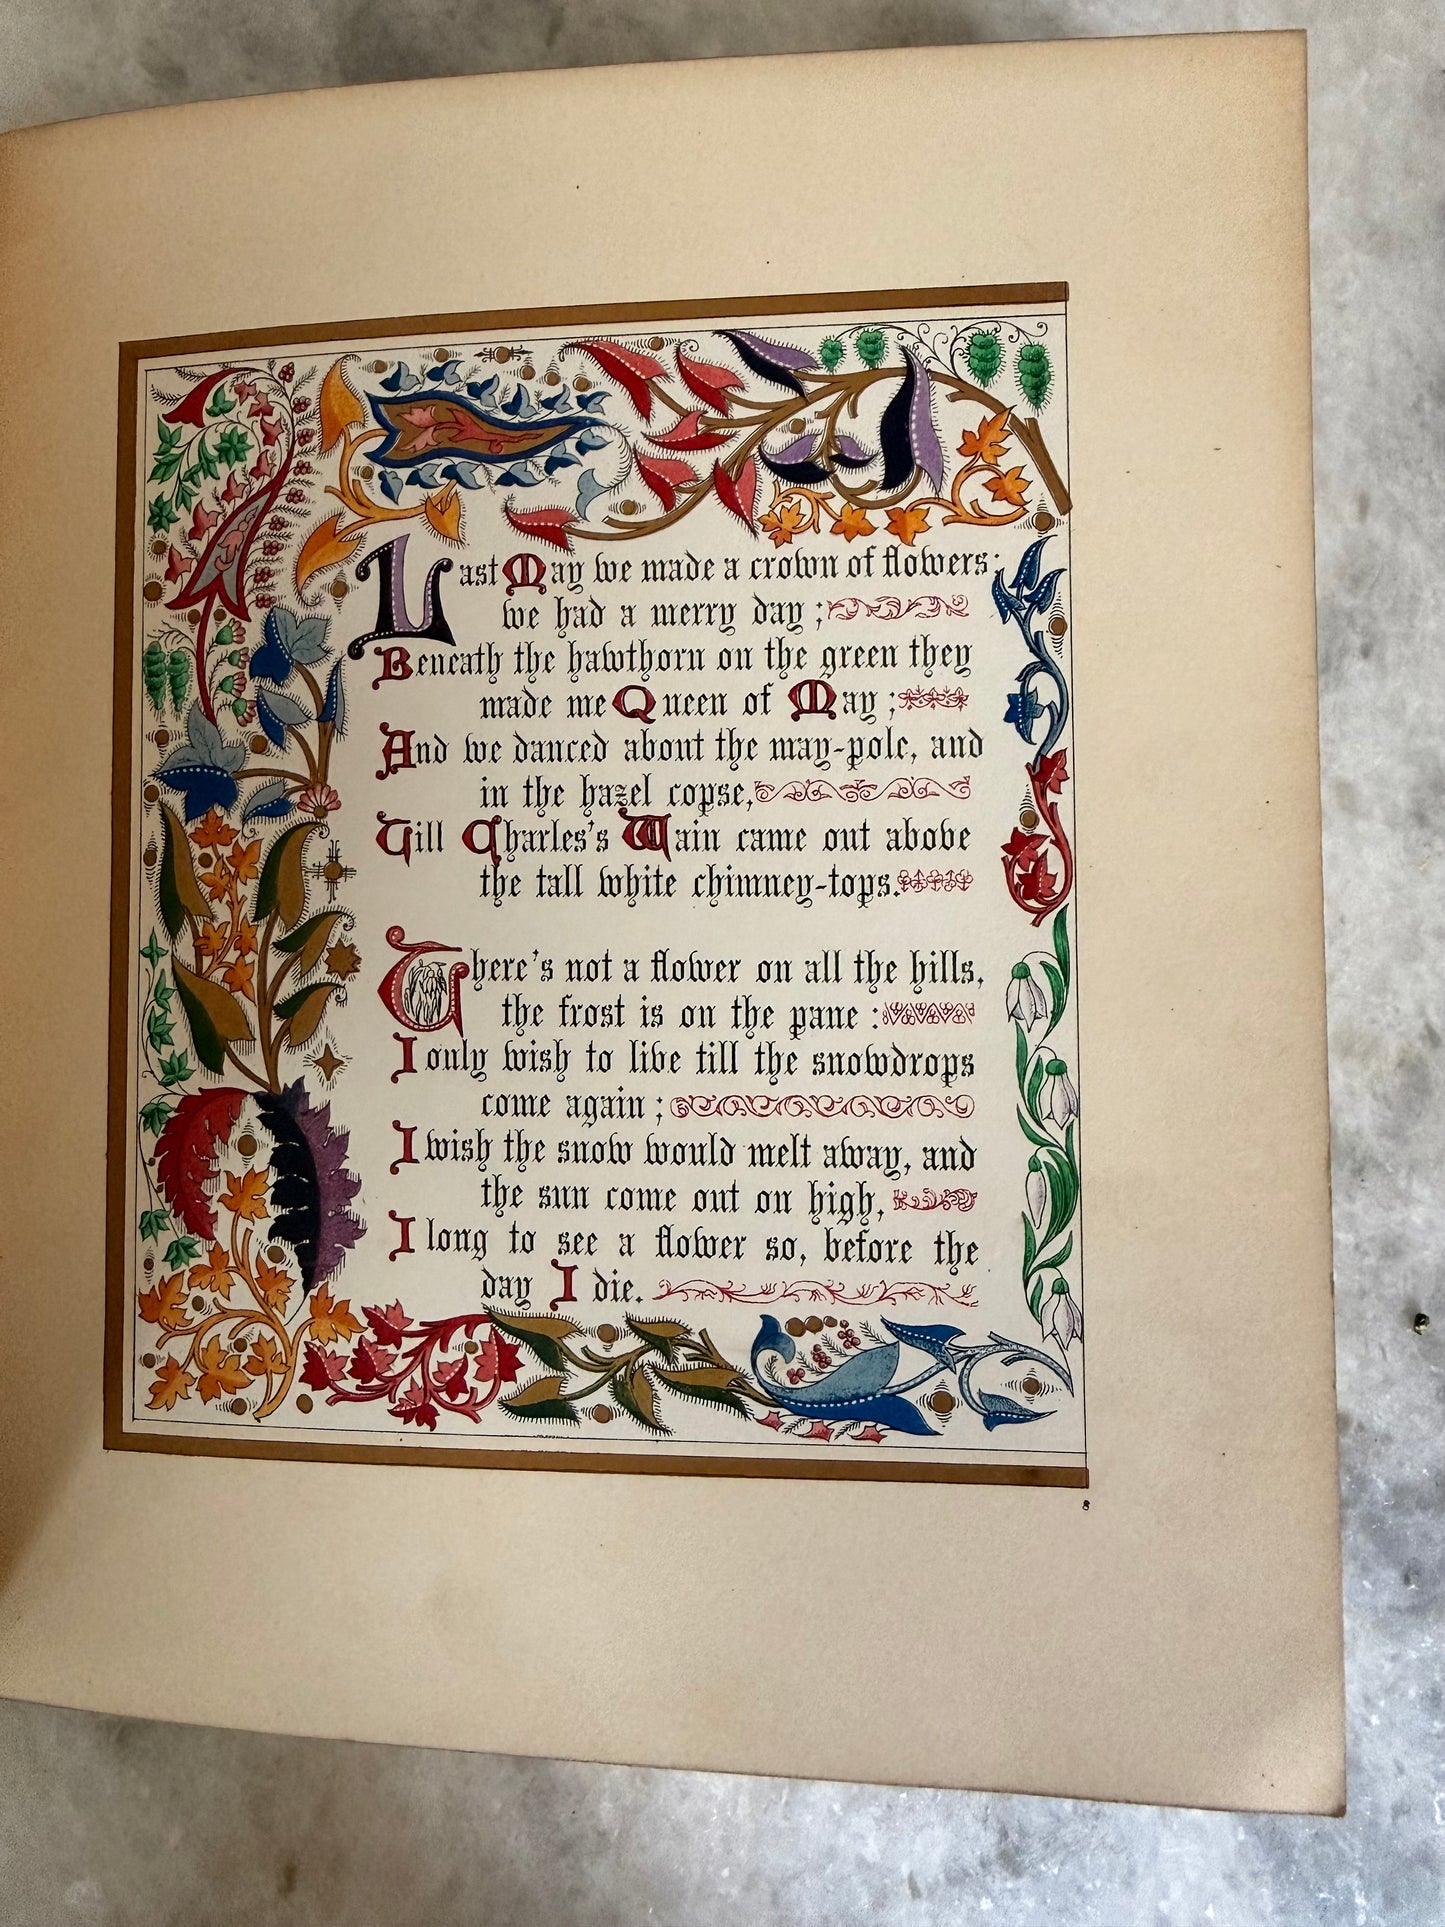 Last May we made a crown of flowers:
we had a merry day;
Beneath the hawthorn on the green they
made me Queen of May;
And we danced about the may-pole, and
in the hazel copse,
Till Charles's Wain came out above
the tall white chimney-tops.
There's not a flower on all the hills,
the frost is on the pane:
I only wish to live till the snowdrops
come again;
I wish the snow would melt away, and
the sun come out on high,
I long to see a flower so, before the
day I die.
8